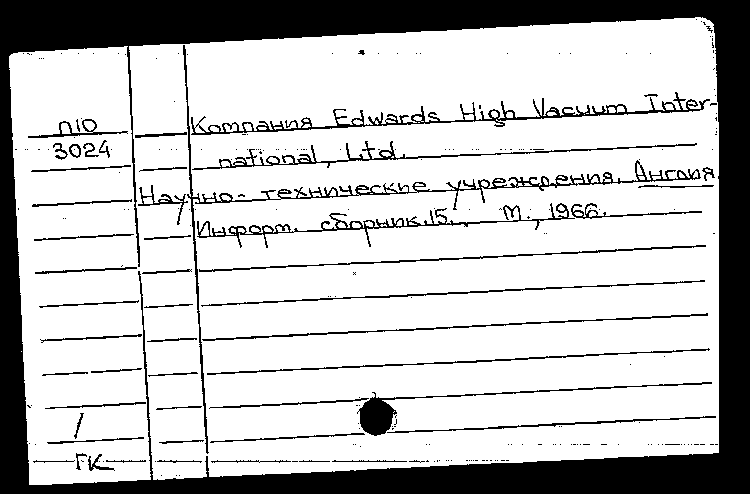 П10
3024
Компания Edwards High Vacuum Inter-
national, Ltd.
Научно-технические учреждения. Англия
Информ. сборник.15., М., 1966.
/
ГК